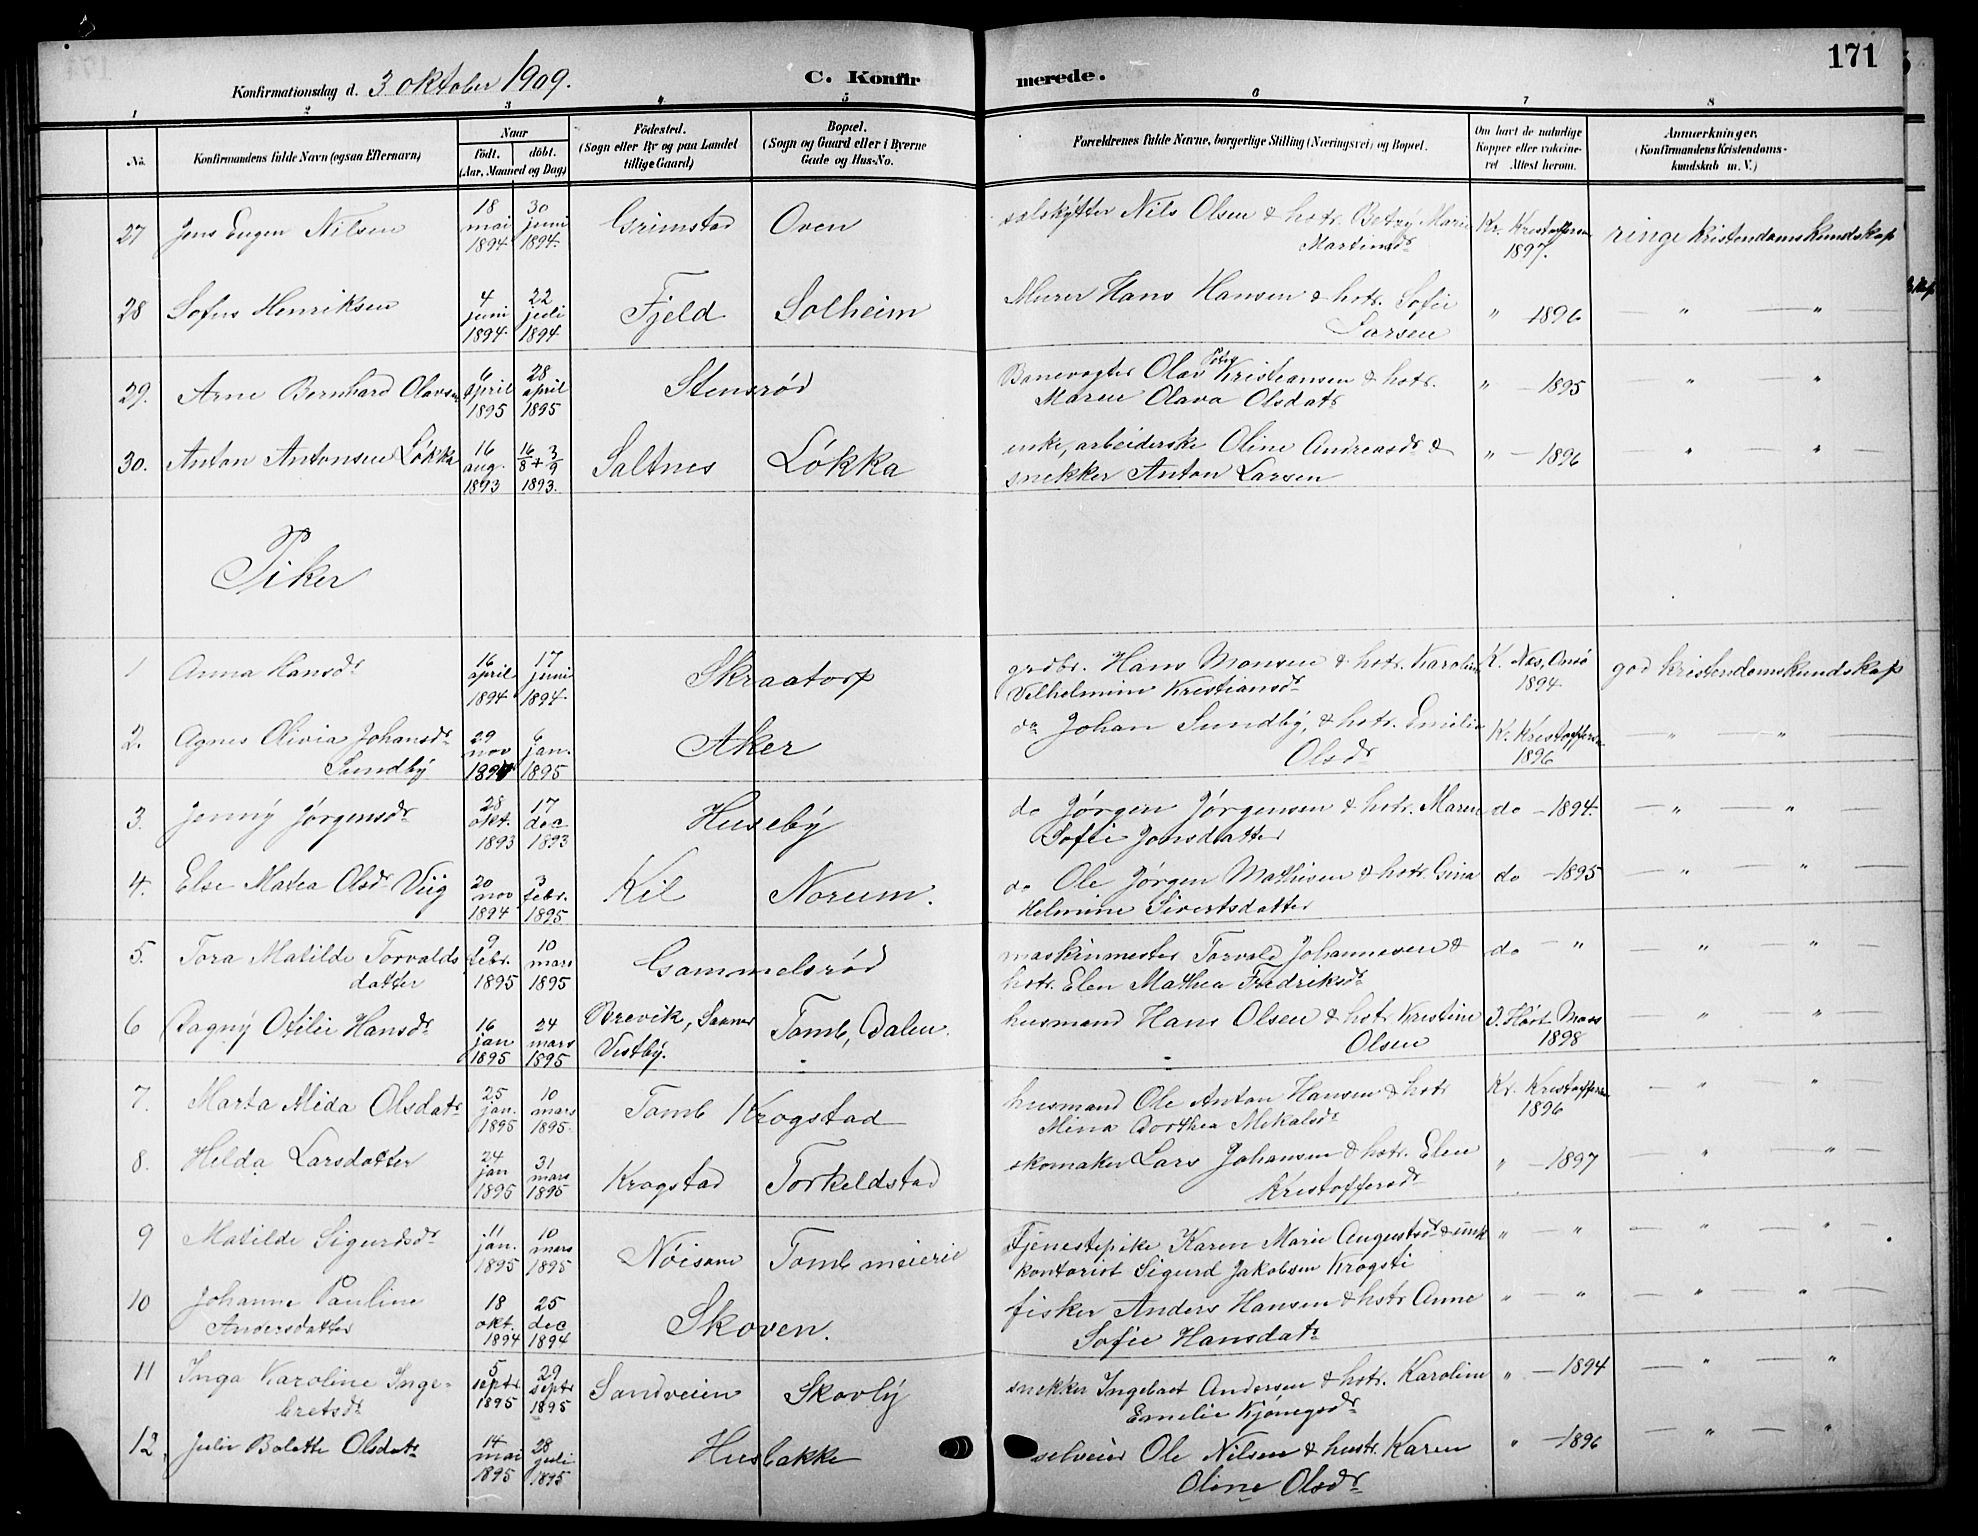 171
Konfirmationsdag d. 3 oktober 1909.
C. Konfirmerede.
1 2 3 4 5 6 7 8
No.
Konfirmandens fulde Navn (ogsaa Efternavn)
Naar
födt. döbt.
(Aar, Maaned og Dag)
Födested.
(Sogn eller By og paa Landet
tillige Gaard)
Bopæl.
(Sogn og Gaard eller i Byerne
Gade og Hus-No.
Forældrenes fulde Navne, borgerlige Stilling (Næringsvei) og Bopæl.
Om havt de naturlige
Kopper eller vakcineret
Attest herom.
Anmærkninger.
(Konfirmandens Kristendomskundskab
m. V.)
27 Jens Eugen Nilsen 18 mai 1894 30 juni 1894. Grimstad Oven selskytter Nils Olsen & hstr. Betsy Marie
Martinsdr Kr. Kristoffersen 1897. ringe kristendomskundskap
28 Sofus Henriksen 4 juni 1894. 22 juli 1894 Fjeld Solheim Murer Hans Hansen & hstr. Sofie
Larsen " 1896 — " — " —
29. Arne Bernhard Olavsen 6 april 1895 28 april 1895 Stensrød Banevogter Olav Kristiansen & hstr.
Maren Olava Olsdatr " — 1895 " "
30. Anton Antonsen Løkka 16 aug. 1893 16/8 + 3/9 1893. Saltnes Løkka enke, arbeiderske Oline Andreasdr &
snekker Anton Larsen " — 1896 — " — " —
Piker
1 Anna Hansdr 16 april 1894 17 juni 1894. Skraatorp grdbr. Hans Monsen & hstr. Karoline
Vilhelmine Kristiansdr K. Næs, Onsø 1894. god kristendomskundskap
2. Agnes Olivia Johansdr
Sundby 29 nov 1894 6 jan. 1895 Aker do Johan Sundby, & hstr. Emilie
Olsdr K. Kristoffersen 1896 — " — " —
3. Jenny Jørgensdr 28 okt. 1893 17 dec 1893 Huseby do Jørgen Jørgensen & hstr. Maren
Sofie Jonsdatter do — 1894. — " — " —
4. Else Matea Olsdr Viig 20 nov 1894 3 febr. 1895 Kil Norum. do Ole Jørgen Mathisen & hstr. Gina
Helmine Sivertsdatter do — 1895 — " — " —
5. Tora Matilde Torvalds
datter 9 febr. 1895 10 mars 1895 Gammelsrød maskinmester Torvald Johannesen &
hstr. Elen Mathea Fredriksdr do — " — " — " —
6 Dagny Otilie Hansdr 16 jan 1895 24 mars 1895 Brevik, Saaner
Vestby. Tomb, Dalen. husmand Hans Olsen & hstr Kristine
Olsen Moss 1898 — " — " —
7. Marta Mida Olsdatr 25 jan. 1895 10 mars 1895. Tomb Krogstad husmand Ole Anton Hansen & hstr
Mina Dorthea Mikalsdr Kr. Kristoffersen 1896 — " — "
8. Helda Larsdatter 24 jan 1895 31 mars 1895 Krogstad Torkeldstad skomaker Lars Johansen & hstr. Elen
Kristoffersdr " — 1897 — " — " —
9 Matilde Sigurdsdr 11 jan. 1895 10 mars 1895 Nøisom Tomb meieri Tjenestepike Karen Marie Augustsdr & unk
kontorist Sigurd Jakobsen Krogsti " — " — " — "
10 Johanne Pauline
Andersdatter 18 okt. 1894 25 dec 1894 Skoven. fisker Anders Hansen & hstr Anne
Sofie Hansdatr " — " — " — " —
11 Inga Karoline Inge-
bretsdr 5 septr. 1895 29 septr 1895 Sandveien Skovly snekker Ingebret Andersen & hstr. Karoline
Emelie " — 1894 — " — "
12. Julie Bolette Olsdatr 14 mai 1895 28 juli 1895 Husbakke selveier Ole Nilsen & hustr. Karen
Oline Olsdr " — 1896 — " — "